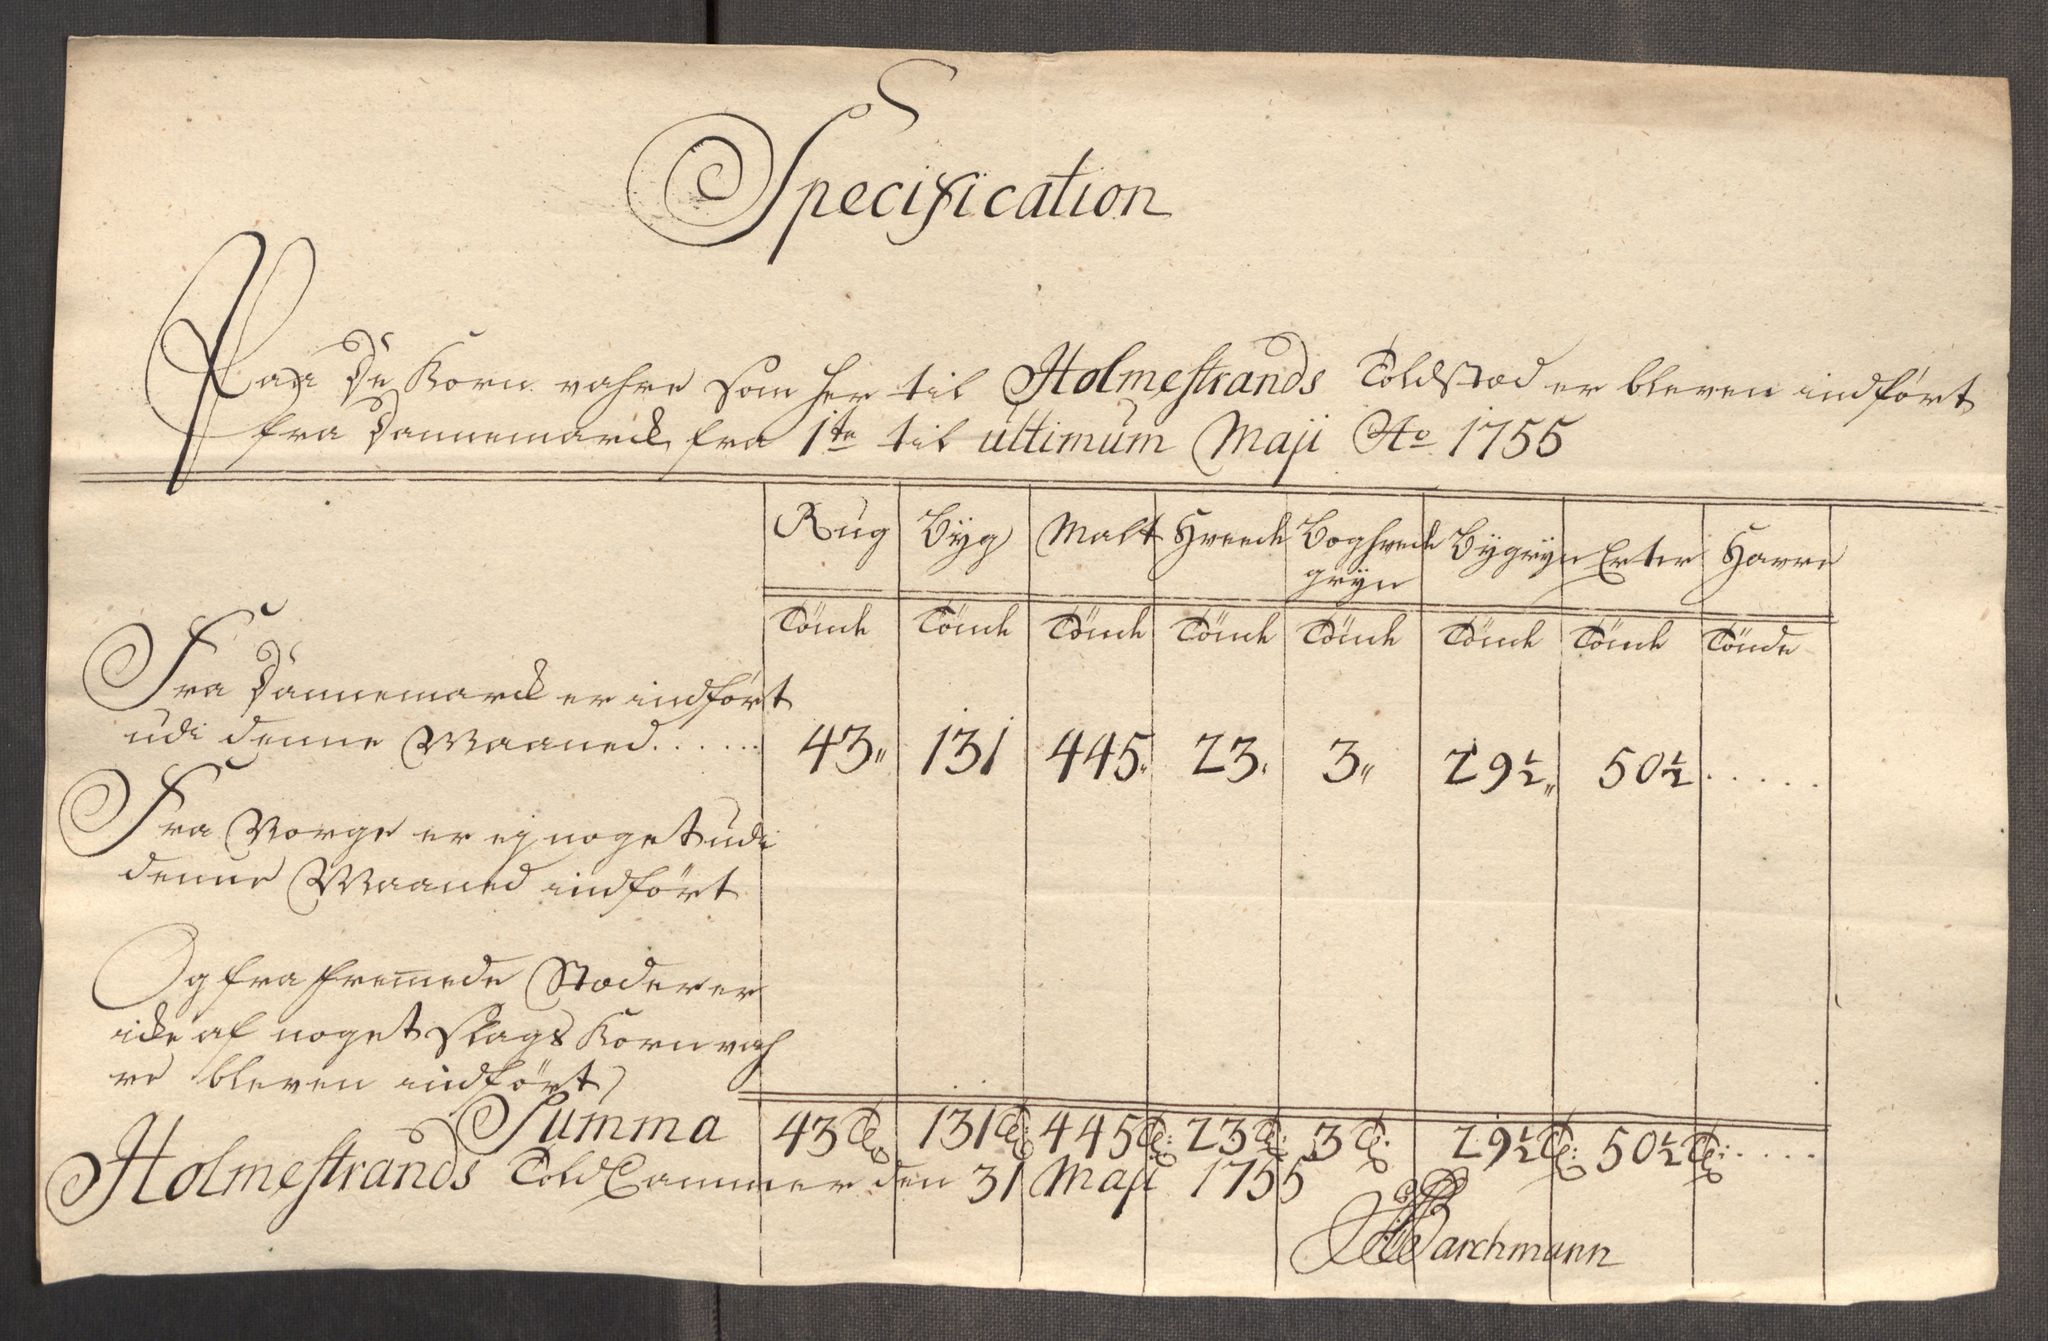 Specification
Paa De Korn vahre som her til Holmestrands Toldsted er bleven indført
fra Dannemarck fra 1te til ultimum Maji Ao 1755
Rug Byg Malt Hveede Boghvede Bygryn Erter Havre
gryn
Tønde Tønde Tønde Tønde Tønde Tønde Tønde Tønde
Fra Dannemarck er indført
udi denne Maaned...... 43,, 131 445,, 23,, 3,, 29½,, 50½ .....
Fra Norge er ej noget udi
denne Maaned indført
Og fra fremmede Stæder er
icke af noget slags Korn vah
re bleven indført
Summa 43 Td: 131 Td: 445 Td: 23 Td: 3 Td: 29½ Td: 50½ Td: .....
Holmestrands Told Cammer den 31 Maji 1755
Barchmann